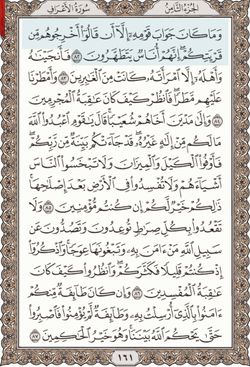 الجزء الثامن سورة الأعراف
وَمَا كَانَ جَوَابَ قَوْمِهِ إِلَّا أَن قَالُوا أَخْرِجُوهُم مِّن
قَرْيَتِكُمْ إِنَّهُمْ أُنَاسٌ يَتَطَهَّرُونَ ٨٢ فَأَنجَيْنَاهُ
وَأَهْلَهُ إِلَّا امْرَأَتَهُ كَانَتْ مِنَ الْغَابِرِينَ ٨٣ وَأَمْطَرْنَا
عَلَيْهِم مَّطَرًا فَانظُرْ كَيْفَ كَانَ عَاقِبَةُ الْمُجْرِمِينَ
٨٤ وَإِلَىٰ مَدْيَنَ أَخَاهُمْ شُعَيْبًا قَالَ يَا قَوْمِ اعْبُدُوا اللَّهَ
مَا لَكُم مِّنْ إِلَٰهٍ غَيْرُهُ قَدْ جَاءَتْكُم بَيِّنَةٌ مِّن رَّبِّكُمْ
فَأَوْفُوا الْكَيْلَ وَالْمِيزَانَ وَلَا تَبْخَسُوا النَّاسَ
أَشْيَاءَهُمْ وَلَا تُفْسِدُوا فِي الْأَرْضِ بَعْدَ إِصْلَاحِهَا
ذَٰلِكُمْ خَيْرٌ لَّكُمْ إِن كُنتُم مُّؤْمِنِينَ ٨٥ وَلَا
تَقْعُدُوا بِكُلِّ صِرَاطٍ تُوعِدُونَ وَتَصُدُّونَ عَن
سَبِيلِ اللَّهِ مَنْ آمَنَ بِهِ وَتَبْغُونَهَا عِوَجًا وَاذْكُرُوا
إِذْ كُنتُمْ قَلِيلًا فَكَثَّرَكُمْ وَانظُرُوا كَيْفَ كَانَ
عَاقِبَةُ الْمُفْسِدِينَ ٨٦ وَإِن كَانَ طَائِفَةٌ مِّنكُمْ
آمَنُوا بِالَّذِي أُرْسِلْتُ بِهِ وَطَائِفَةٌ لَّمْ يُؤْمِنُوا فَاصْبِرُوا
حَتَّىٰ يَحْكُمَ اللَّهُ بَيْنَنَا وَهُوَ خَيْرُ الْحَاكِمِينَ ٨٧
١٦١